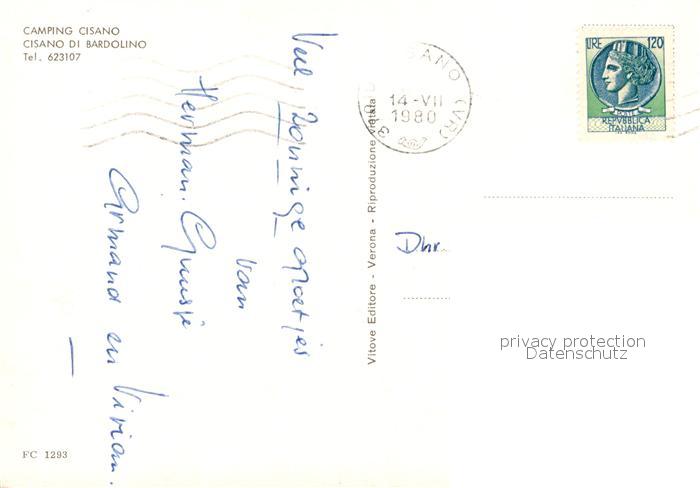 CAMPING CISANO
CISANO DI BARDOLINO
Tel. 623107
Veel zonnige groetjes
van
Herman. Guusje
Armand en Vivian.
FC 1293
Vitove Editore - Verona - Riproduzione vietata
SANO (VR)
14-VII
1980
LIRE 120
REPVBBLICA
ITALIANA
Dhr.
privacy protection
Datenschutz